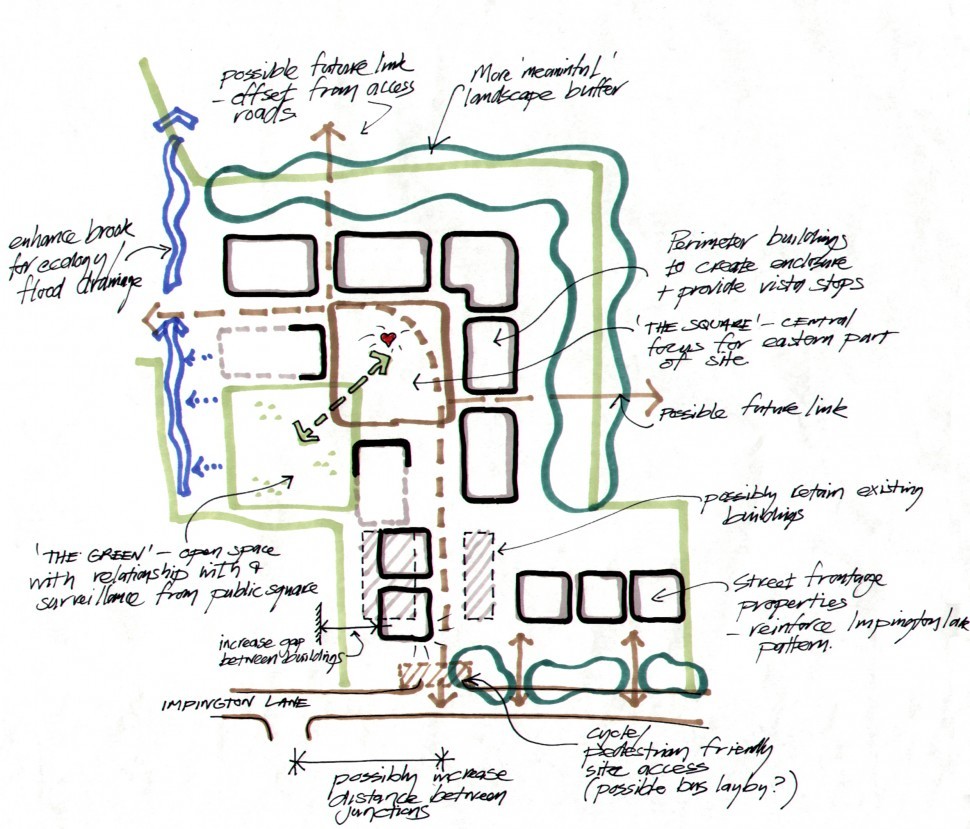 possible future link
- offset from access
roads
More 'meaningful'
landscape buffer
enhance brook
for ecology/
flood drainage
Perimeter buildings
to create enclosure
+ provide vista stops
'THE SQUARE' - CENTRAL
focus for eastern part
of site
possible future link
possibly retain existing
buildings
'THE GREEN' - open space
with relationship with &
surveillance from public square
increase gap
between buildings
Street frontage
properties
- reinforce Impington lane
pattern.
IMPINGTON LANE
cycle/
pedestrian friendly
site access
(possible bus layby?)
possibly increase
distance between
junctions